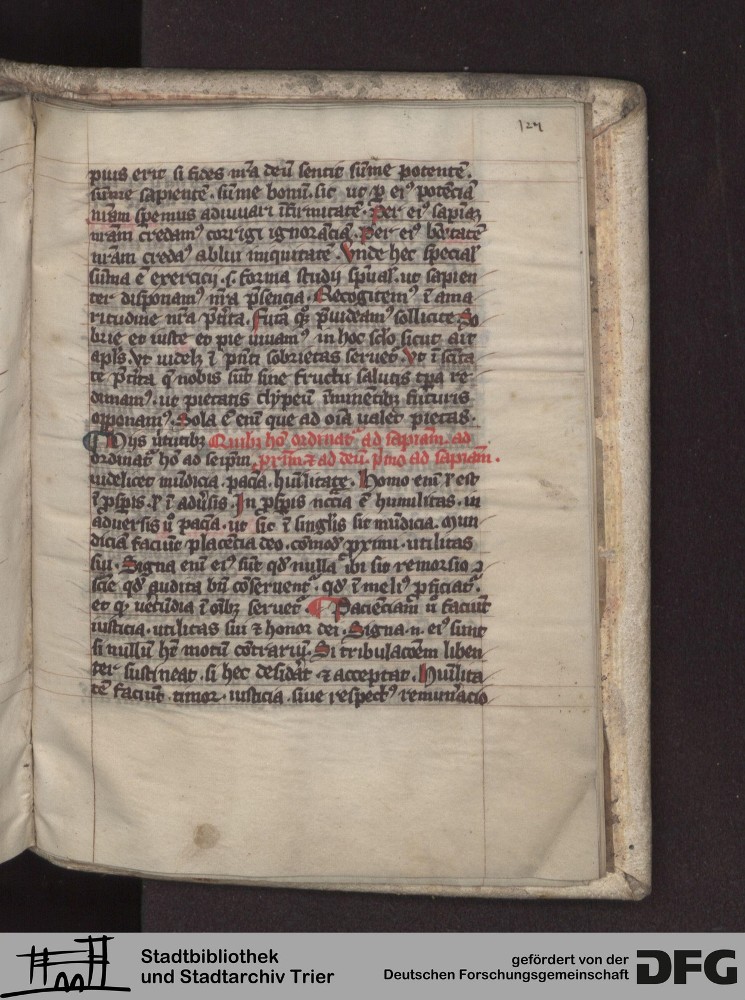 124
puis erit si fides nr̄a deū sentit sūme potentē.
sūme sapientē. sūme bonū. sic ut ꝑ eiꝰ potēciā
nr̄am spemus adiuuari īfirmitatē. Per eiꝰ sapiāȝ
nr̄am credamꝰ corrigi ignorāciā. Per eiꝰ bōitatē
nr̄am credaꝰ ablui iniquitatē. Vnde hec specialˀ
sūma ē exercicij. s. forma studij sp̄ualˀ. ut sapien
ter disponamꝰ nr̄a p̄sencia. Recogitemꝰ ī ama
ritudine nr̄a p̄tita. Futa prouideamꝰ sollicite. So
brie et iuste et pie uiuamꝰ in hoc sc̄lo sicut ait
apl̄s. Vt uidelꝫ ī pn̄ti sobrietas seruet̉. Vt ī
p̄tita q̄ nobis sūt sine fructu salutis tp̄a re
dimamꝰ. ut pietatis clypeū īminētibꝫ futuris
opponamꝰ. Sola ē enī que ad oīa ualet pietas.
Hijs ūtutibꝫ Quibꝫ hō ordinat̉ ad sapiam. ad
ordinat̉ hō ad seip̄m prīm ⁊ ad deū. pͥmo ad sapiam.
uidelicet mūdicia. paciā. hūilitate. Homo enī ł est
ī ꝓsꝑis. ł ī adūsis. In ꝓsꝑis nccīa ē humilitas. in
aduersis ū paciā. ut sic ī singlis sit mūdicia. Mun
diciā faciūt placēcia deo. cōmodū ꝓximi. utilitas
sui. Signa enī eiꝰ sūt qd̄ nulla ibi sit remorsio ꝯ
scīe qd̄ audita bn̄ cōseruent̉. qd̄ ī meliꝰ ꝓficiat̉.
et qd̄ uerecūdia ī oībꝫ seruet̉. Pacienciam ū faciūt
iusticia. utilitas sui ⁊ honor dei. Signa .n. eiꝰ sunt
si nullū hēt motū cōtrariū. Si tribulacōem liben
ter sustineat. si hec desidāt ⁊ acceptat. Hūilita
tē faciūt. timor. iusticia. siue respectꝰ remun̄acio
Stadtbibliothek
und Stadtarchiv Trier
gefördert von der
Deutschen Forschungsgemeinschaft
DFG